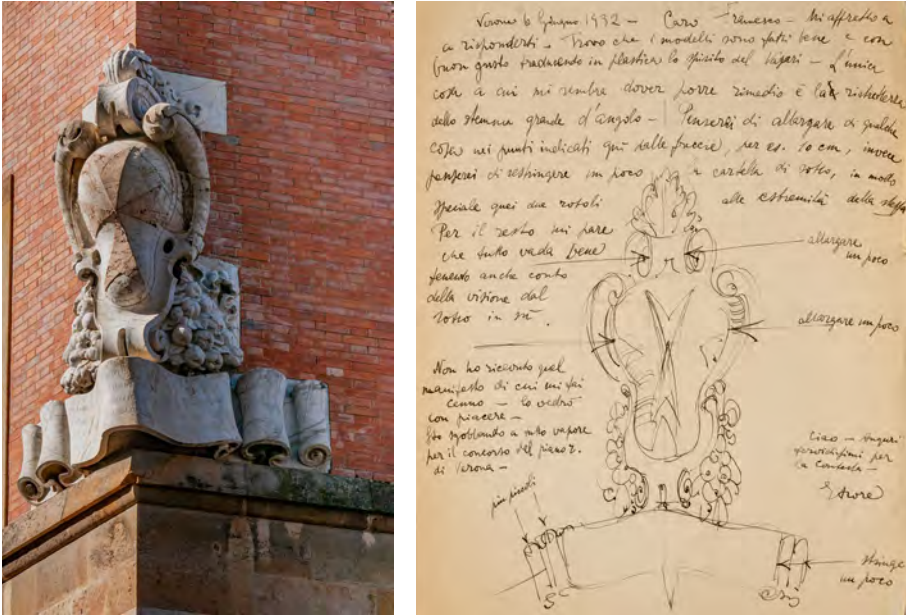 Verona 6 Giugno 1932 – Caro Francesco – Mi affretto a
a risponderti – Trovo che i modelli sono fatti bene e con
buon gusto traducendo in plastica lo spirito del
cosa a cui mi sembra dover porre rimedio è la ristrettezza
dello stemma grande d'angolo – Penserei di allargare di qualche
cosa nei punti indicati qui dalle freccie, per es. 10 cm, invece
penserei di restringere un poco la cartella di sotto, in modo
speciale quei due rotoli alle estremità della stessa
Per il resto mi pare
che tutto vada bene
tenendo anche conto
della visione dal
sotto in su.
allargare
un poco
allargare un poco
Non ho ricevuto quel
manifesto di cui mi fai
cenno – lo vedrò
con piacere –
Sto sgobbando a tutto vapore
per il concorso del piano r.
di Verona –
Ciao – Auguri
fervidissimi per
la Contesta –
Ettore
più piccoli
stringere
un poco